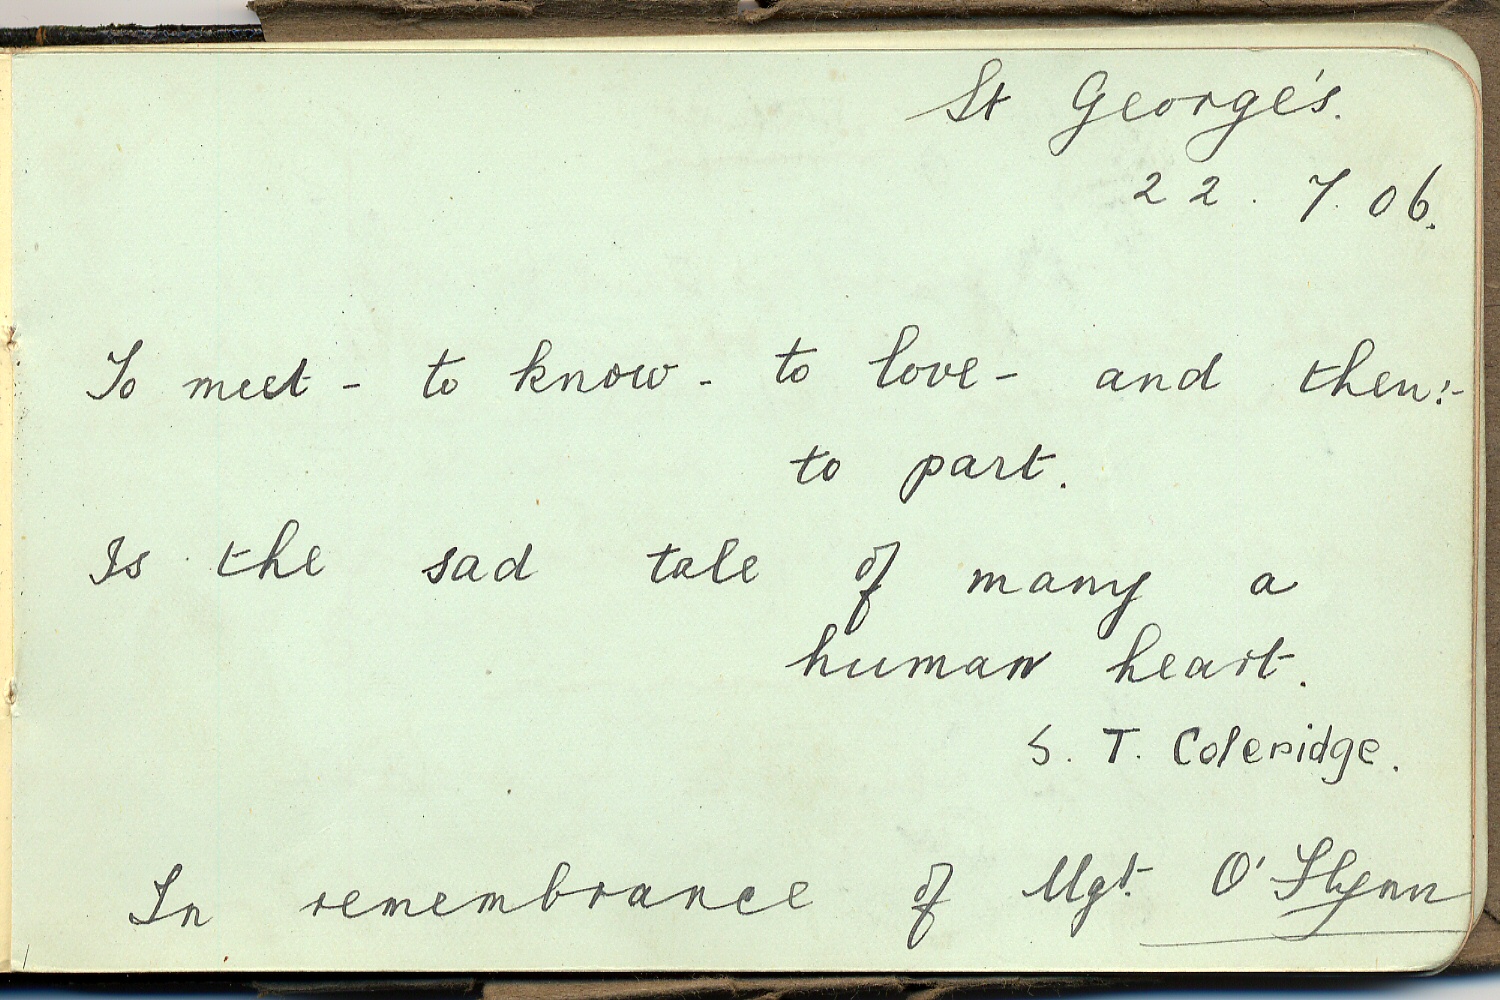 St George's.
22. 7. 06.
To meet - to know - to love - and then:-
to part.
Is the sad tale of many a
human heart.
S. T. Coleridge.
In remembrance of Mgt. O'Flynn